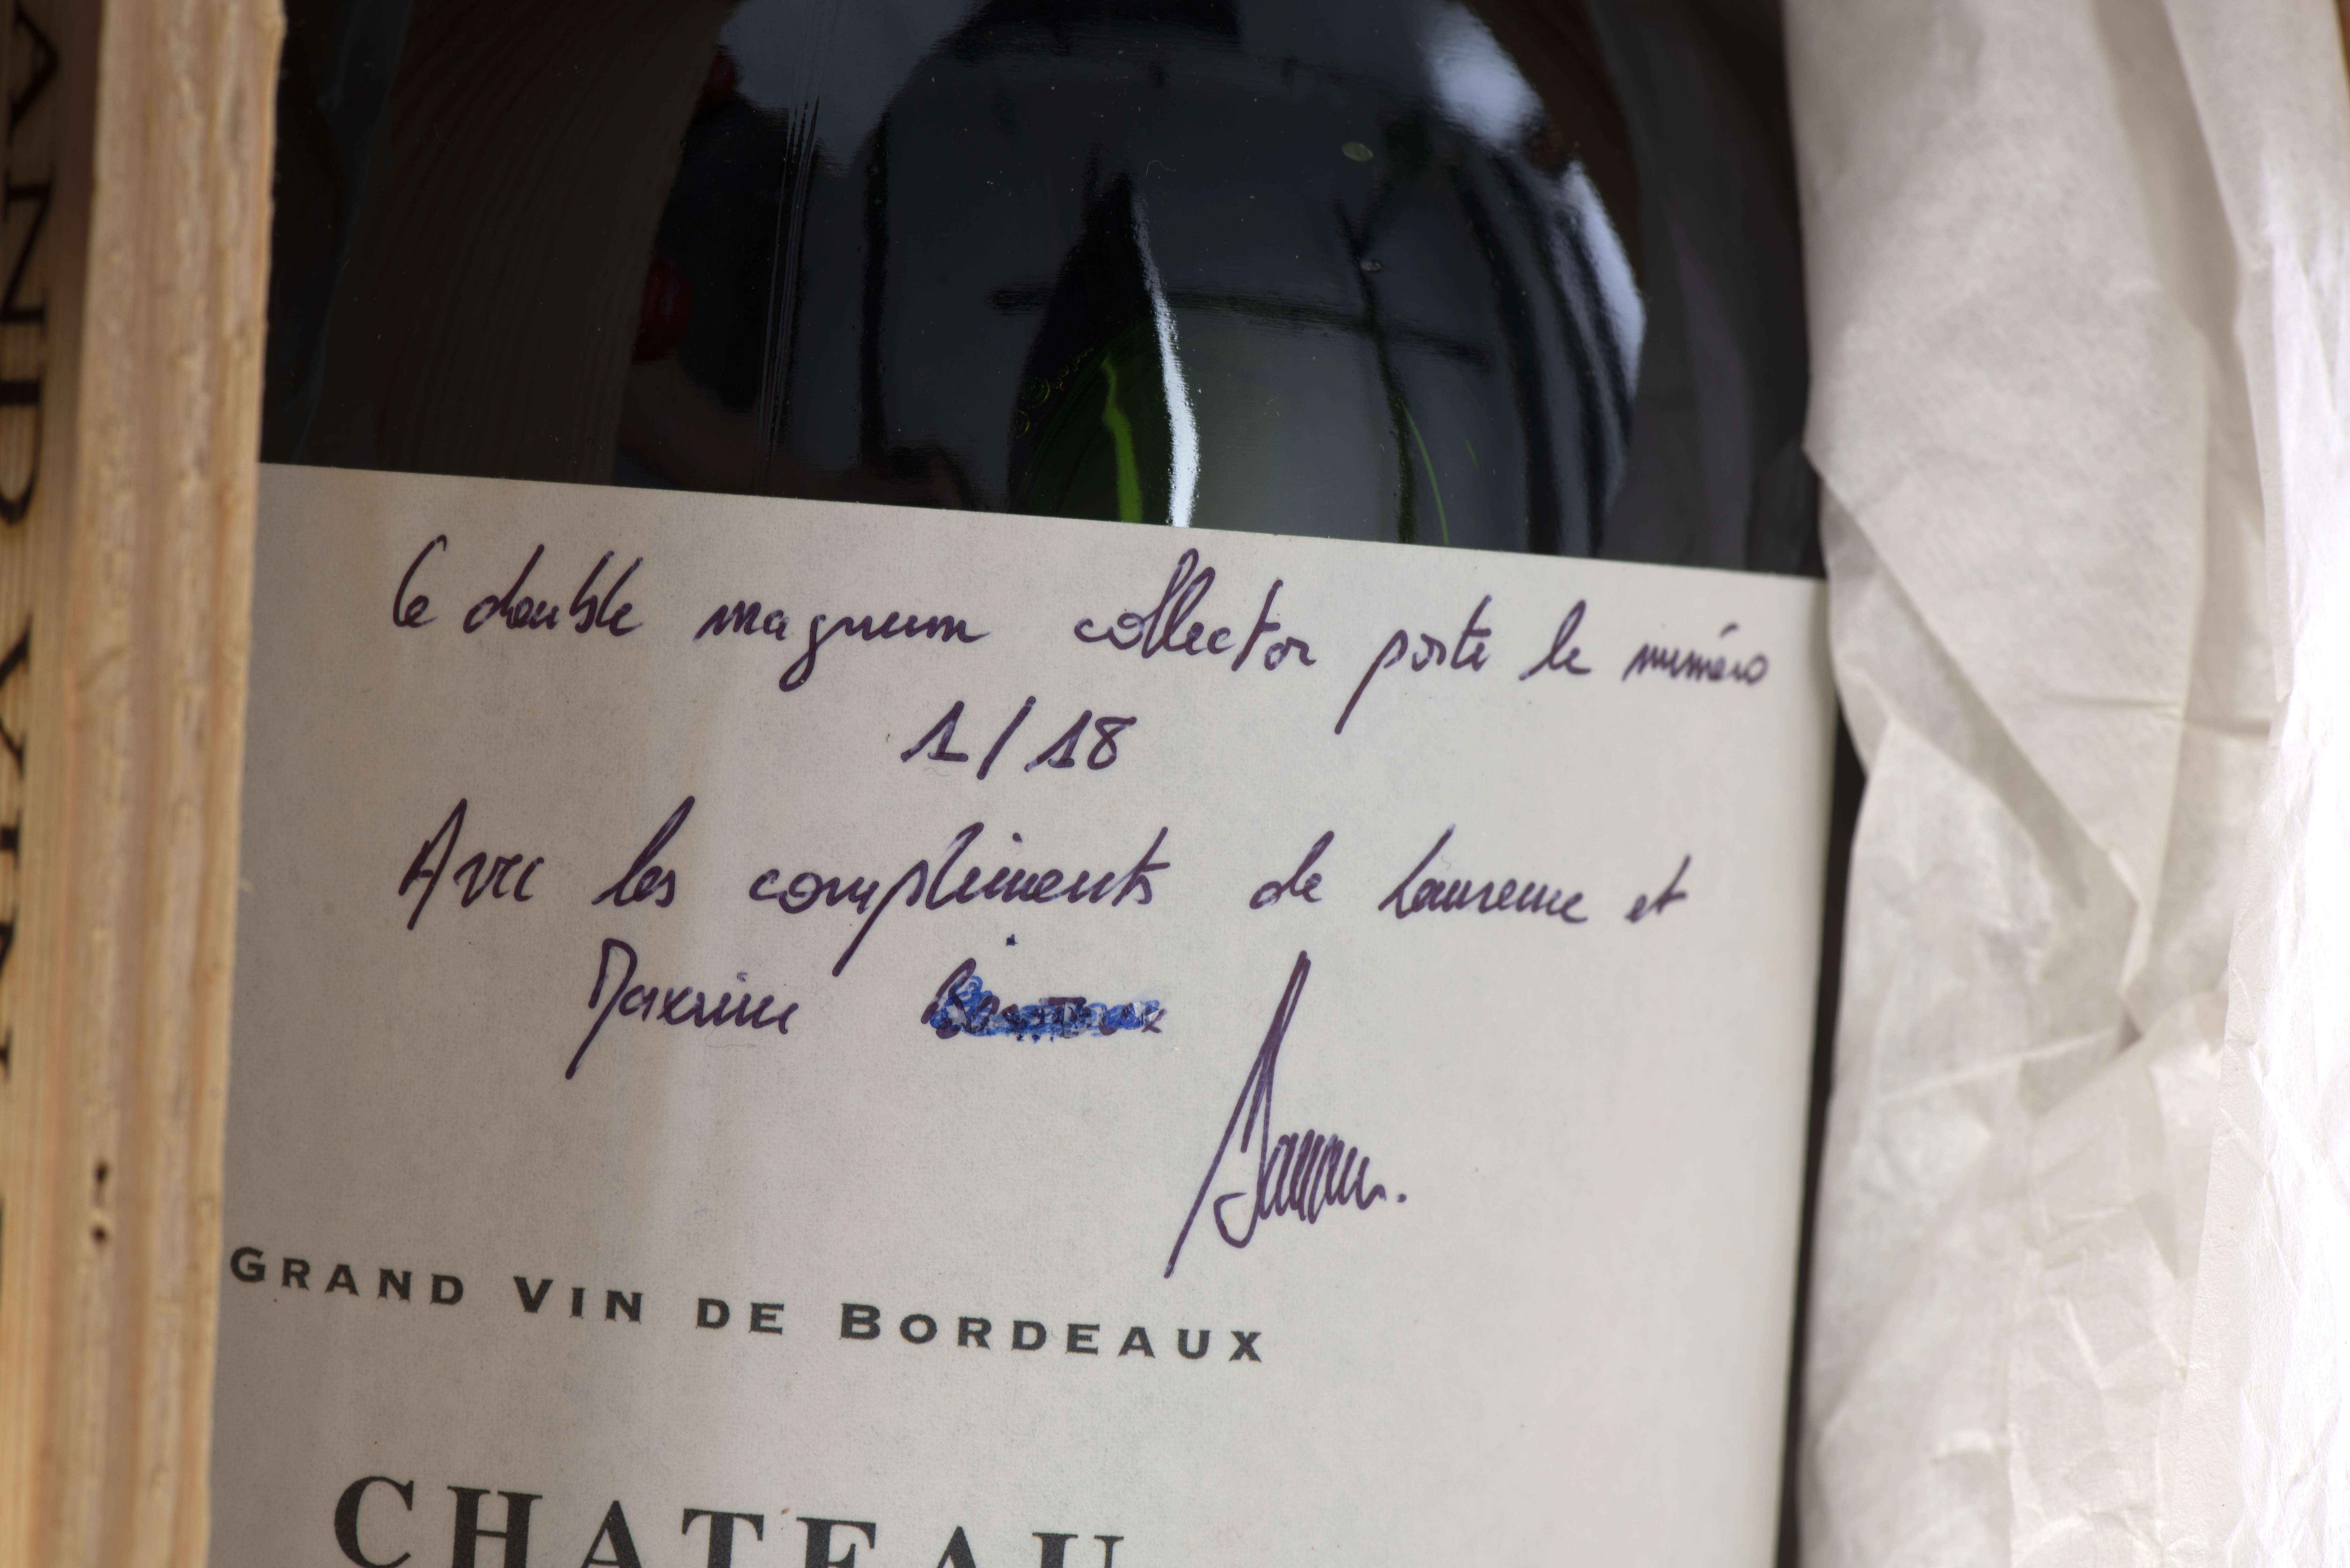 Ce double magnum collector porte le numéro
1/18
Avec les compliments de Laurence et
Maxime
GRAND VIN DE BORDEAUX
CHATEAU
AND VIN